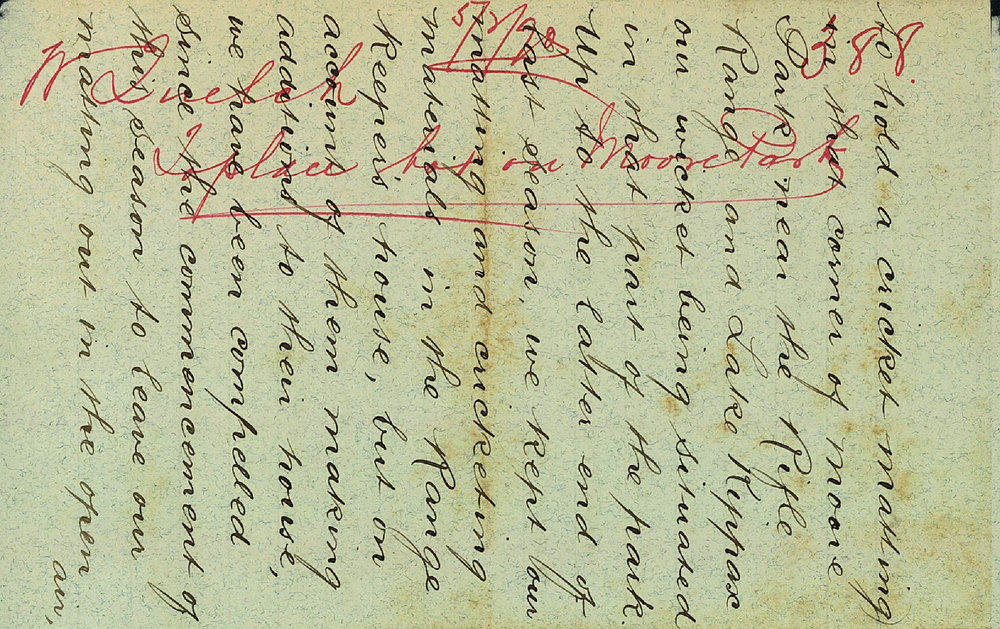 to hold a cricket matting)
in that corner of Moore
Park near the Rifle
Range and Lake Kippax
our wicket being situated
in that part of the park.
Up to the latter end of
last season, we kept our
matting and cricketing
materials in the Range
Keeper's house, but on
account of them making
additions to their house,
we have been compelled
since the commencement of
this season to leave our
matting out in the open
air,
388.
W
To place box on Moore Park